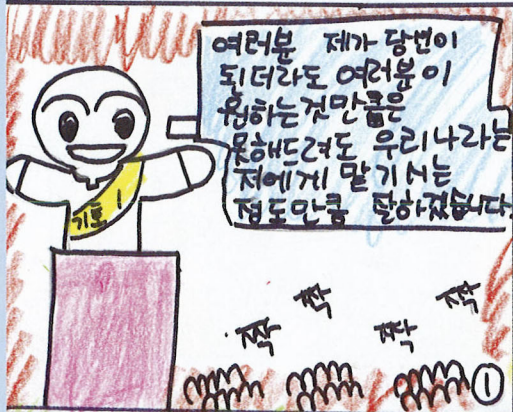 여러분 제가 당번이
된더라도 여러분이
원하는것만큼은
못해드려도 우리나라는
저에게 맡기시는
점도만큼 잘하겠습니다.
기호 1
짝
짝
짝
짝
1